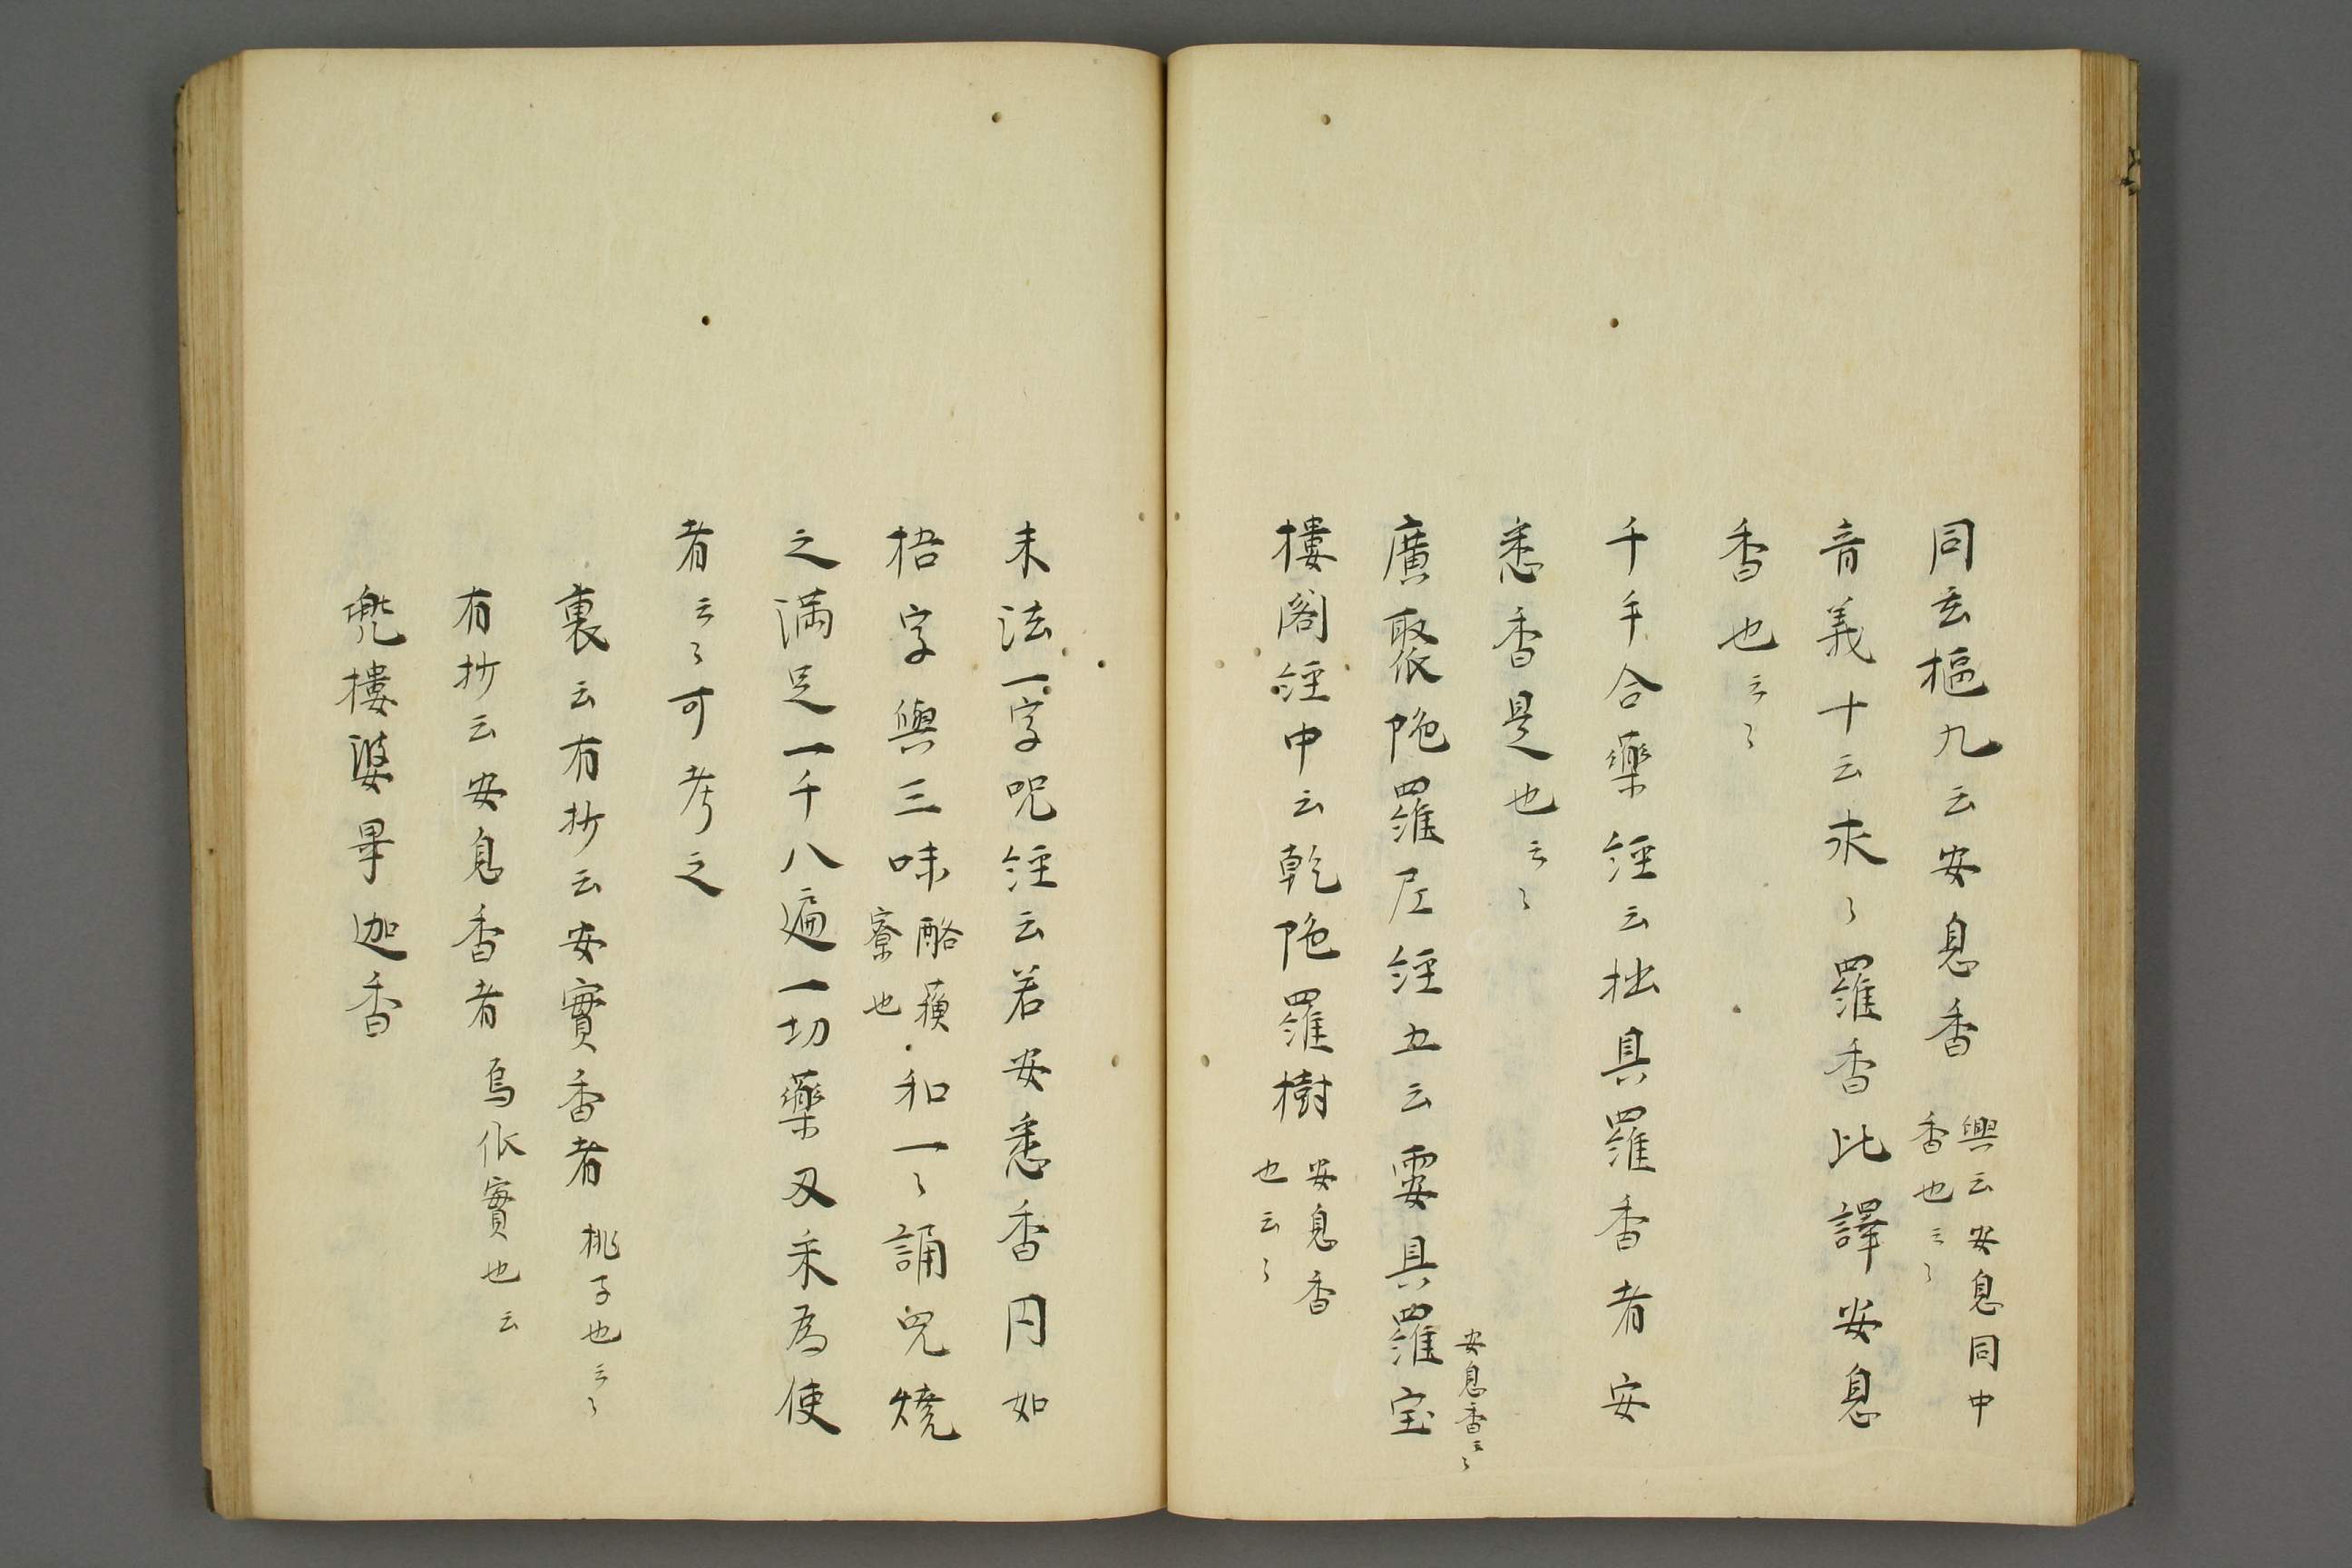 同玄樞九云安息香 興云安息同中香也云々
音義十云求々羅香比譯安息
香也云々
千手合藥経云拙具羅香者安
悉香是也云々
廣聚陁羅尼経五云寠具羅宝 安息香云々
樓閣経中云乾陁羅樹 安息香也云々
末法一字呪経云若安悉香円如
梧字與三味 酪蘋寮也 和一々誦呪燒
之満足一千八遍一切藥叉来為使
者云々可考之
裏云有抄云安實香者 桃子也云々
有抄云安息香者 烏依實也云
兜樓婆畢迦香